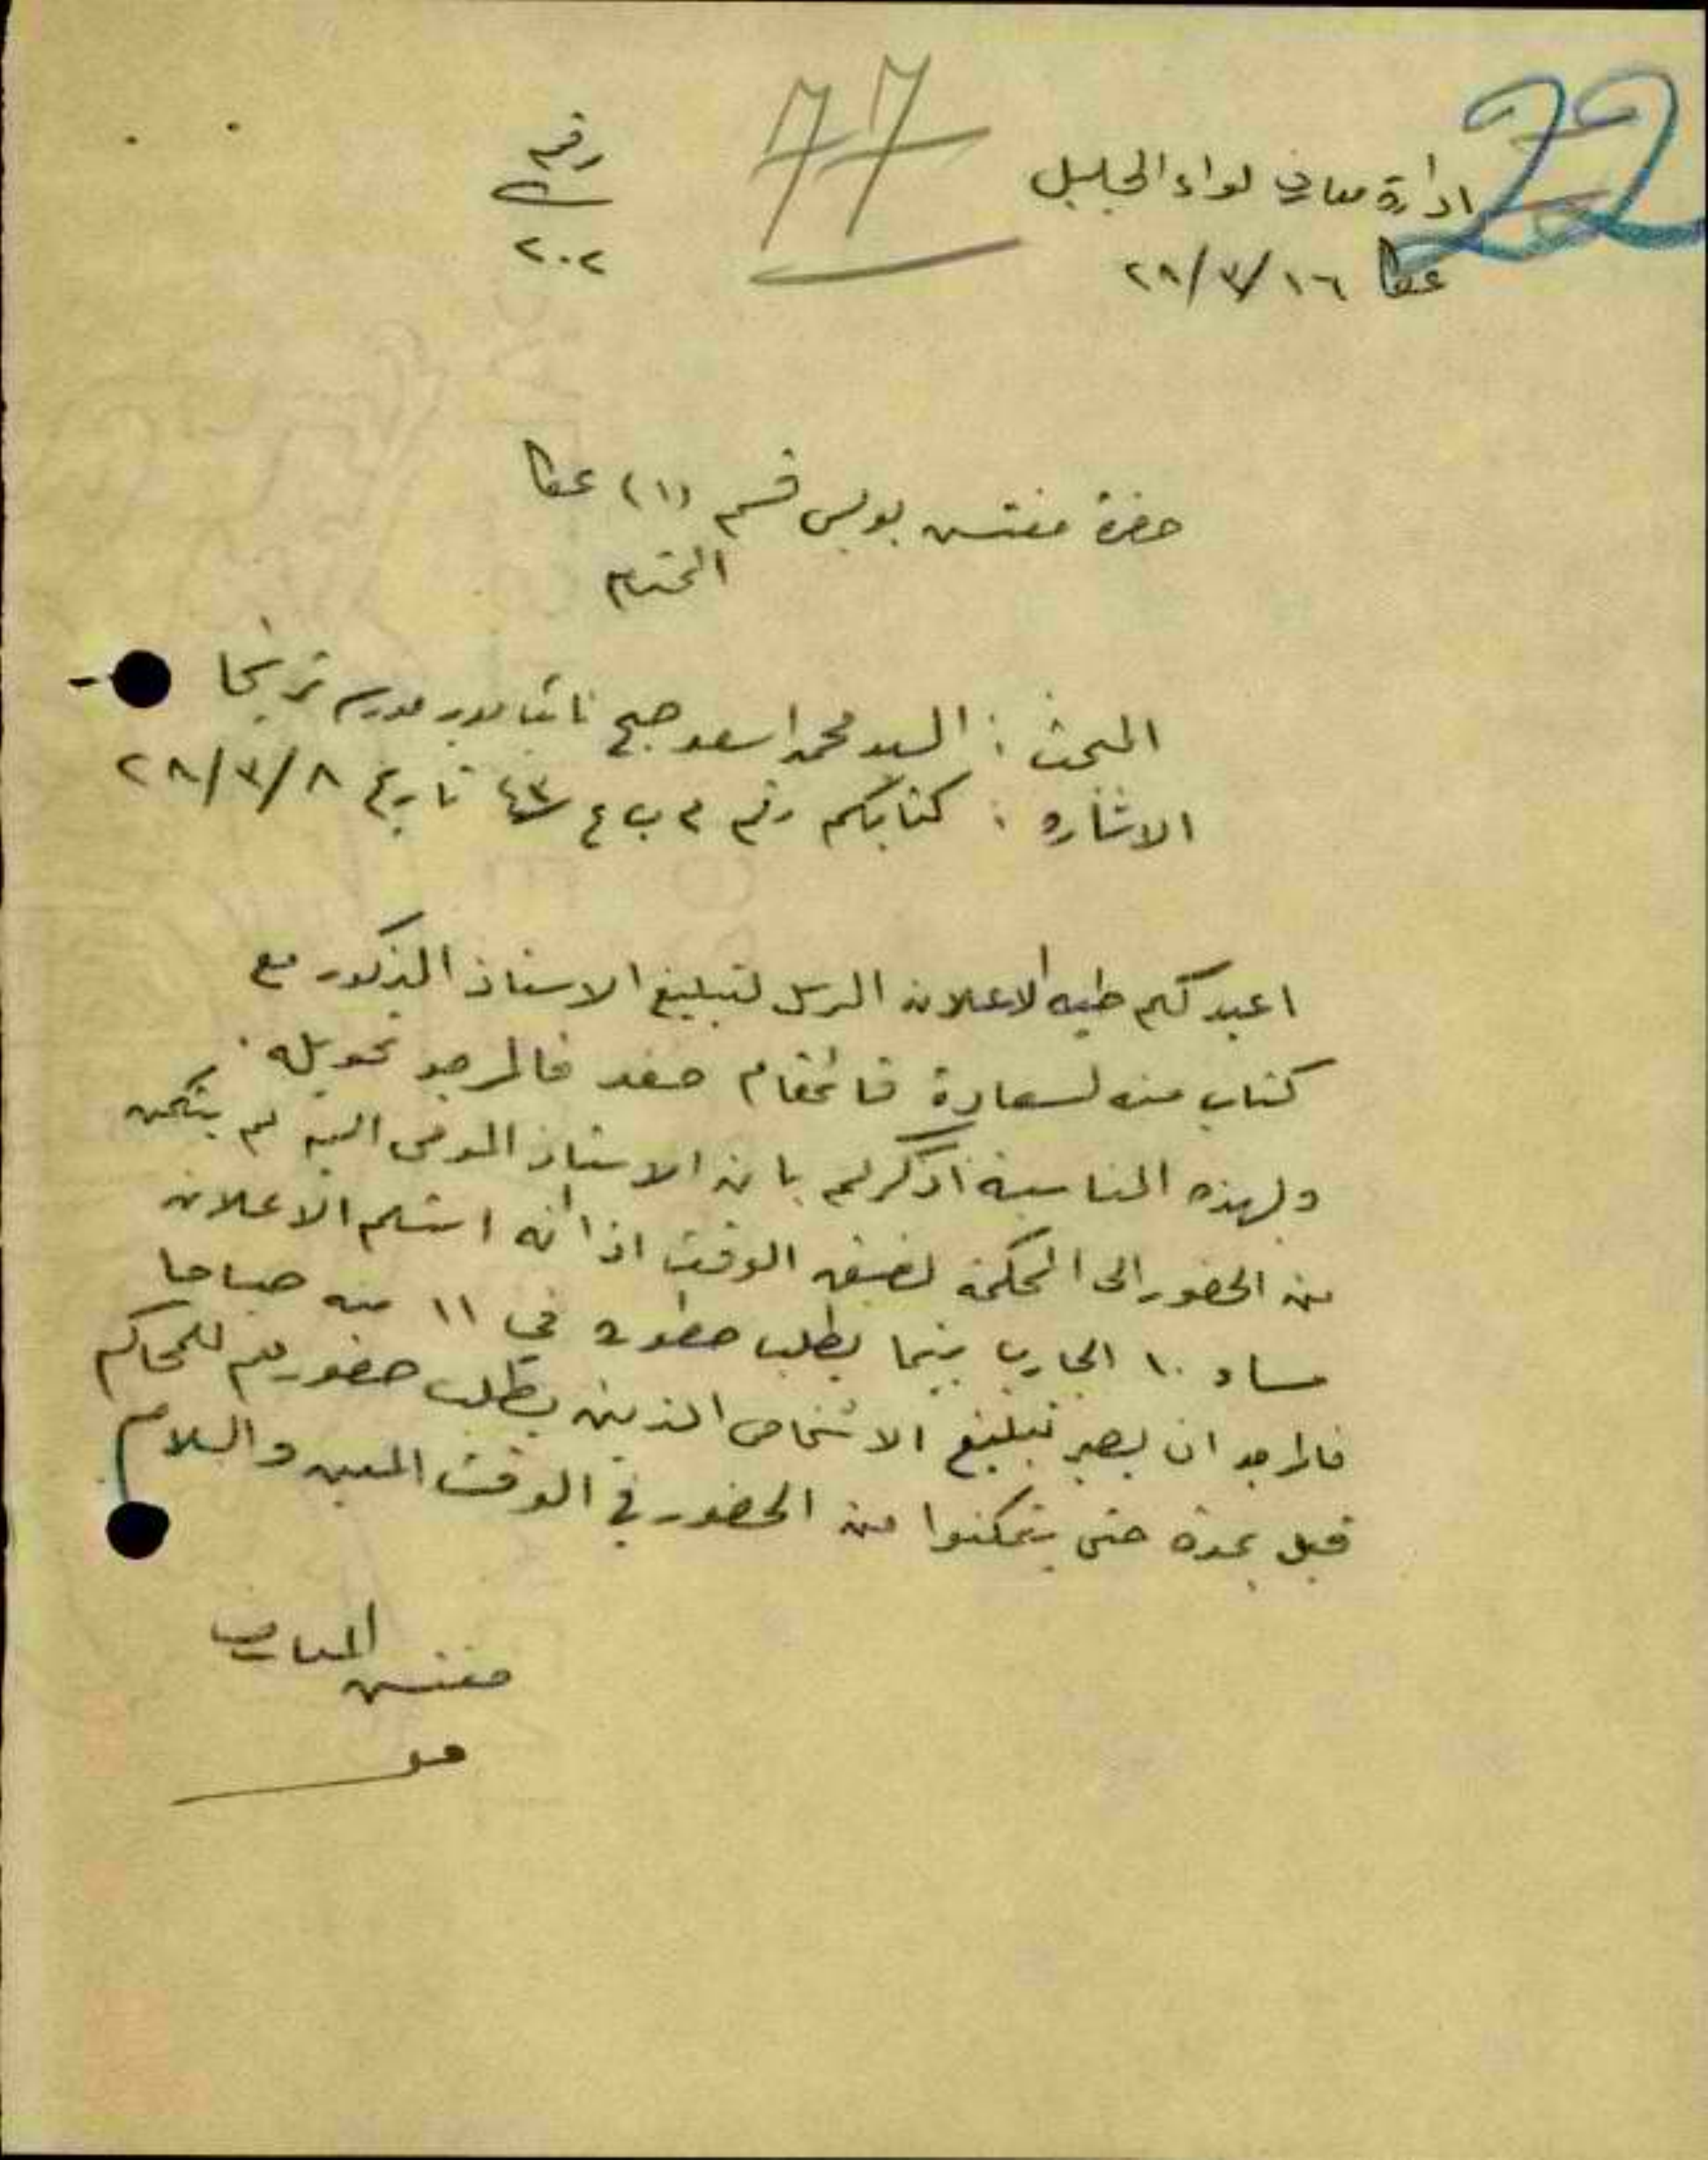 22
77
ادارة معارف لواء الجليل
رقم
٢٠٢
عكا ١٦/٣/٢٨
حضرة مفتش بوليس قسم (١) عكا
المحترم
المبحث : السيد محمد اسعد صبح نائب مدير مدرسة ترشيحا
الاشارة : كتابكم رقم م ب ع ٤٣ تاريخ ٨/٣/٢٨
اعيد لكم طيه الاعلان المرسل لتبليغ الاستاذ المذكور مع
كتاب منه لسعادة قائمقام صفد فالمرجو تحويله.
ولهذه المناسبة اذكر لكم بان الاستاذ المومى اليه لم يتمكن
من الحضور الى المحكمة لضيق الوقت اذ انه استلم الاعلان
مساء ١٠ الجاري بينما يطلب حضوره في ١١ منه صباحا
فالمرجو ان يصير تبليغ الاشخاص الذين يطلب حضورهم للمحاكم
قبل بمدة حتى يتمكنوا من الحضور في الوقت المعين والسلام
مفتش المعارف